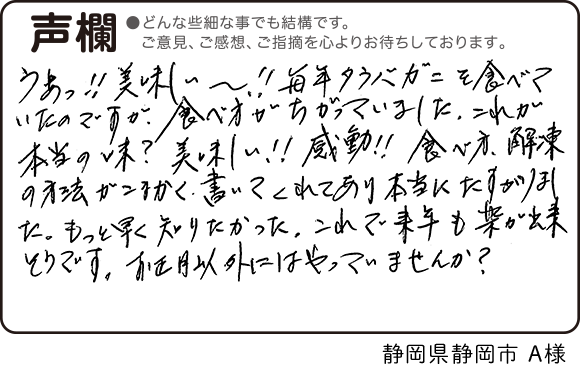 声欄
●どんな些細な事でも結構です。
ご意見、ご感想、ご指摘を心よりお待ちしております。
うあっ!!美味しい〜!!毎年タラバガニを食べて
いたのですが、食べ方がちがっていました。これが
本当の味?美味しい!!感動!!食べ方、解凍
の方法がこまかく書いてくれてあり本当にたすかりまし
た。もっと早く知りたかった。これで来年も楽が出来
そうです。お正月以外にはやっていませんか?
静岡県静岡市 A様